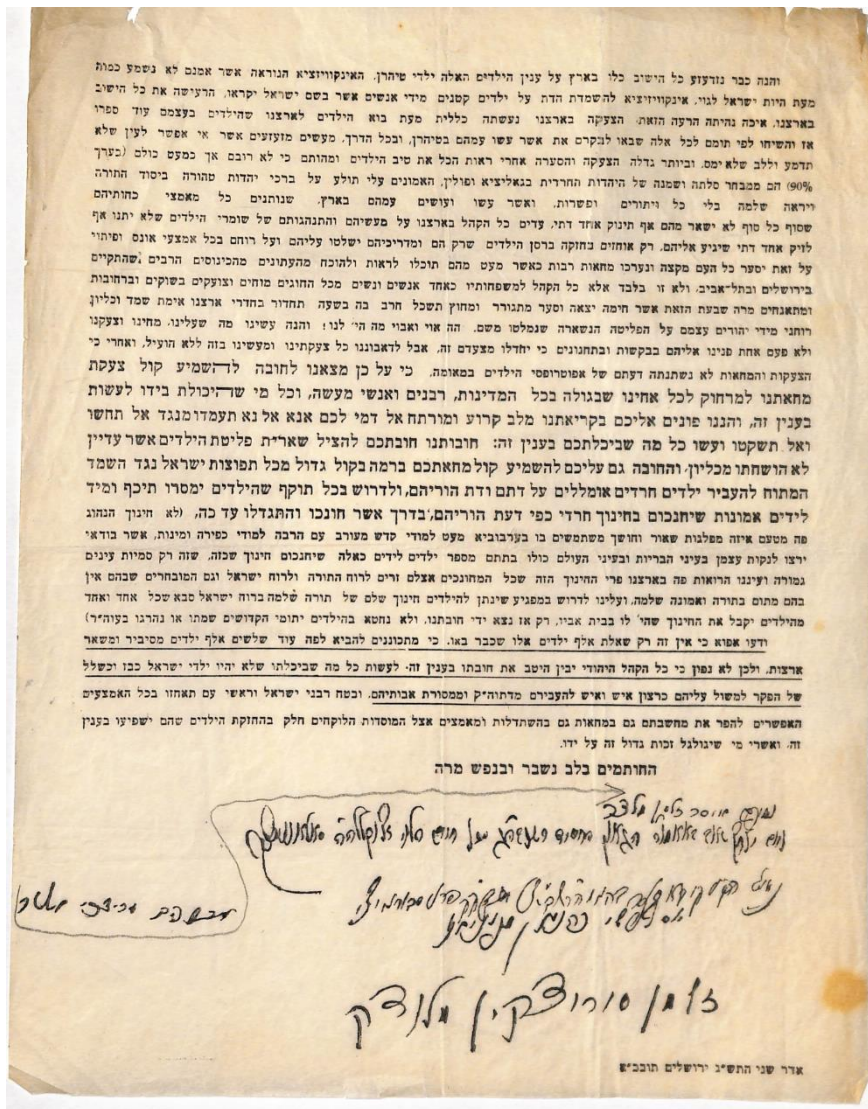 והנה כבר נזדעזע כל הישיב כלו בארץ על ענין הילדים האלה ילדי טיהרן. האינקוויזציא הנוראה אשר אמנם לא נשמע כמוה
מעת היות ישראל לגוי. אינקוויזציא להשמדת הדת על ילדים קטנים מידי אנשים אשר בשם ישראל יקראו, הרעישה את כל הישוב
בארצנו, איכה נהיתה הרעה הזאת. הצעקה בארצנו נעשתה כללית מעת בוא הילדים לארצנו שהילדים בעצמם עוד ספרו
אז והשיחו לפי תומם לכל אלה שבאו לבקרם את אשר עשו עמהם בטיהרן, ובכל הדרך, מעשים מזעזעים אשר אי אפשר לעין שלא
תדמע וללב שלא ימס. וביותר גדלה הצעקה והסערה אחרי ראות הכל את טיב הילדים ומהותם כי לא רובם אך כמעט כולם (בערך
90%) הם ממבחר סלתה ושמנה של היהדות החרדית בגאליציא ופולין, האמונים עלי תולע על ברכי יהדות טהורה ביסוד התורה
ויראה שלמה בלי כל ויתורים ופשרות. ואשר עשו ועושים עמהם בארץ. שנותנים כל מאמצי כחותיהם
שסוף כל סוף לא ישאר מהם אף תינוק אחד דתי, עדים כל הקהל בארצנו על מעשיהם והתנהגותם של שומרי הילדים שלא יתנו אף
לזיק אחד דתי שיגיע אליהם, רק אוחזים בחזקה ברסן הילדים שרק הם ומדריכיהם ישלטו עליהם ועל רוחם בכל אמצעי אונס ופיתוי
על זאת יסער כל העם מקצה ונערכו מחאות רבות כאשר מעט מהם תוכלו לראות ולהוכח מהעתונים מהכינוסים הרבים שהתקיים
בירושלים ובתל־אביב, ולא זו בלבד אלא כל הקהל למשפחותיו כאחד אנשים ונשים מכל החוגים מוחים וצועקים בשוקים וברחובות
ומתאנחים מרה שבעת הזאת אשר חימה יצאה וסער מתגורר ומחוץ תשכל חרב בה בשעה תחדור בחדרי ארצנו אימת שמד וכליון
רוחני מידי יהודים עצמם על הפליטה הנשארה שנמלטו משם, הה אוי ואבוי מה הי' לנו! והנה עשינו מה שעלינו, מחינו וצעקנו
ולא פעם אחת פנינו אליהם בבקשות ובתחנונים כי יחדלו מצעדם זה, אבל לדאבוננו כל צעקתינו ומעשינו בזה ללא הועיל, ואחרי כי
הצעקות והמחאות לא נשתנתה דעתם של אפוטרופסי הילדים במאומה, כי על כן מצאנו לחובה להשמיע קול צעקת
מחאתנו למרחוק לכל אחינו שבגולה בכל המדינות, רבנים ואנשי מעשה, וכל מי שהיכולת בידו לעשות
בענין זה, והננו פונים אליכם בקריאתנו מלב קרוע ומורתח אל דמי לכם אנא אל נא תעמדו מנגד אל תחשו
ואל תשקטו ועשו כל מה שביכלתכם בענין זה: חובותנו חובתכם להציל שארית פליטת הילדים אשר עדיין
לא הושחתו מכליון, והחובה גם עליכם להשמיע קול מחאתכם ברמה בקול גדול מכל תפוצות ישראל נגד השמד
המתוח להעביר ילדים חרדים אומללים על דתם ודת הוריהם, ולדרוש בכל תוקף שהילדים ימסרו תיכף ומיד
לידים אמונות שיחנכום בחינוך חרדי כפי דעת הוריהם, בדרך אשר חונכו והתגדלו עד כה, (לא חינוך הנהוג
פה מטעם איזה מפלגות שאור וחושך משתמשים בו בערבוביא מעט למודי קדש מעורב עם הרבה למודי כפירה ומינות, אשר בודאי
ירצו לנקות עצמן בעיני הבריות ובעיני העולם כולו בתתם מספר ילדים לידים כאלה שיחנכום חינוך שכזה, שזה רק סמיות עינים
גמורה ועיננו הרואות פה בארצנו פרי החינוך הזה שכל המחונכים אצלם זרים לרוח התורה ולרוח ישראל וגם המובחרים שבהם אין
בהם מתום בתורה ואמונה שלמה, ועלינו לדרוש במפגיע שינתן להילדים חינוך שלם של תורה שלמה ברוח ישראל סבא שכל אחד ואחד
מהילדים יקבל את החינוך שהי' לו בבית אביו, רק אז נצא ידי חובתנו, ולא נחטא בהילדים יתומי הקדושים שמתו או נהרגו בעוה״ר)
ודעו אפוא כי אין זה רק שאלת אלף ילדים אלו שכבר באו, כי מתכוננים להביא לפה עוד שלשים אלף ילדים מסיביר ומשאר
ארצות, ולכן לא נפון כי כל הקהל היהודי יבין היטב את חובתו בענין זה, לעשות כל מה שביכלתו שלא יהיו ילדי ישראל כבז וכשלל
של הפקר למשול עליהם כרצון איש ואיש להעבירם מדתוה״ק וממסורת אבותיהם, ובטח רבני ישראל וראשי עם תאחזו בכל האמצעים
האפשרים להפר את מחשבתם גם במחאות גם בהשתדלות ומאמצים אצל המוסדות הלוקחים חלק בהחזקת הילדים שהם ישפיעו בענין
זה, ואשרי מי שיגולגל זכות גדול זה על ידו.
החותמים בלב נשבר ובנפש מרה
איסר זלמן מלצר
זלמן סורוצקין מלוצק
אדר שני התש״ג ירושלים תובב״א